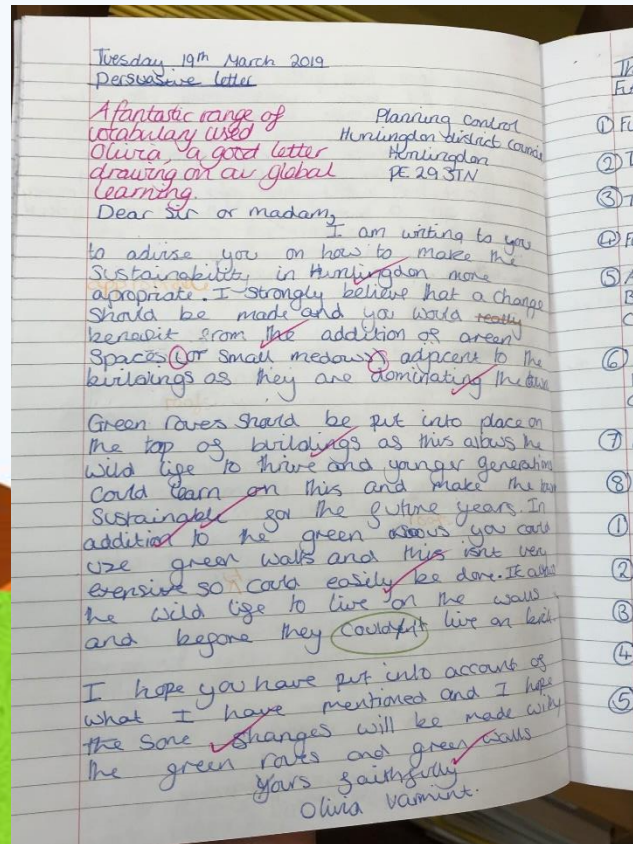 Tuesday 19th March 2019
Persuasive letter
A fantastic range of
votabulary used
Olivia, a good letter
drawing on our global
learning.
Planning control
Huntingdon district council
Huntingdon
PE 29 3TN
Dear Sir or madam,
I am writing to you
to advise you on how to make the
Sustainability in Huntingdon more
apropriate. I strongly believe that a change
should be made and you would really
benefit from the addition of green
spaces (or small medows) adjacent to the
buildings as they are dominating the town
Green roves should be put into place on
the top of buildings as this allows the
wild life to thrive and younger generations
could learn on this and make the town
Sustainable for the future years. In
addition to the green you could
use green walls and this isnt very
exensive so could easily be done. It allows
the wild life to live on the walls
and before they couldn't live on brick.
I hope you have put into account of
what I have mentioned and I hope
the some changes will be made with
the green roves and green walls
Yours faithfully
Olivia Varmint.
Th
Fu
① Fu
② T
③ T
④ F
⑤
⑥
⑦
⑧
①
②
③
④
⑤